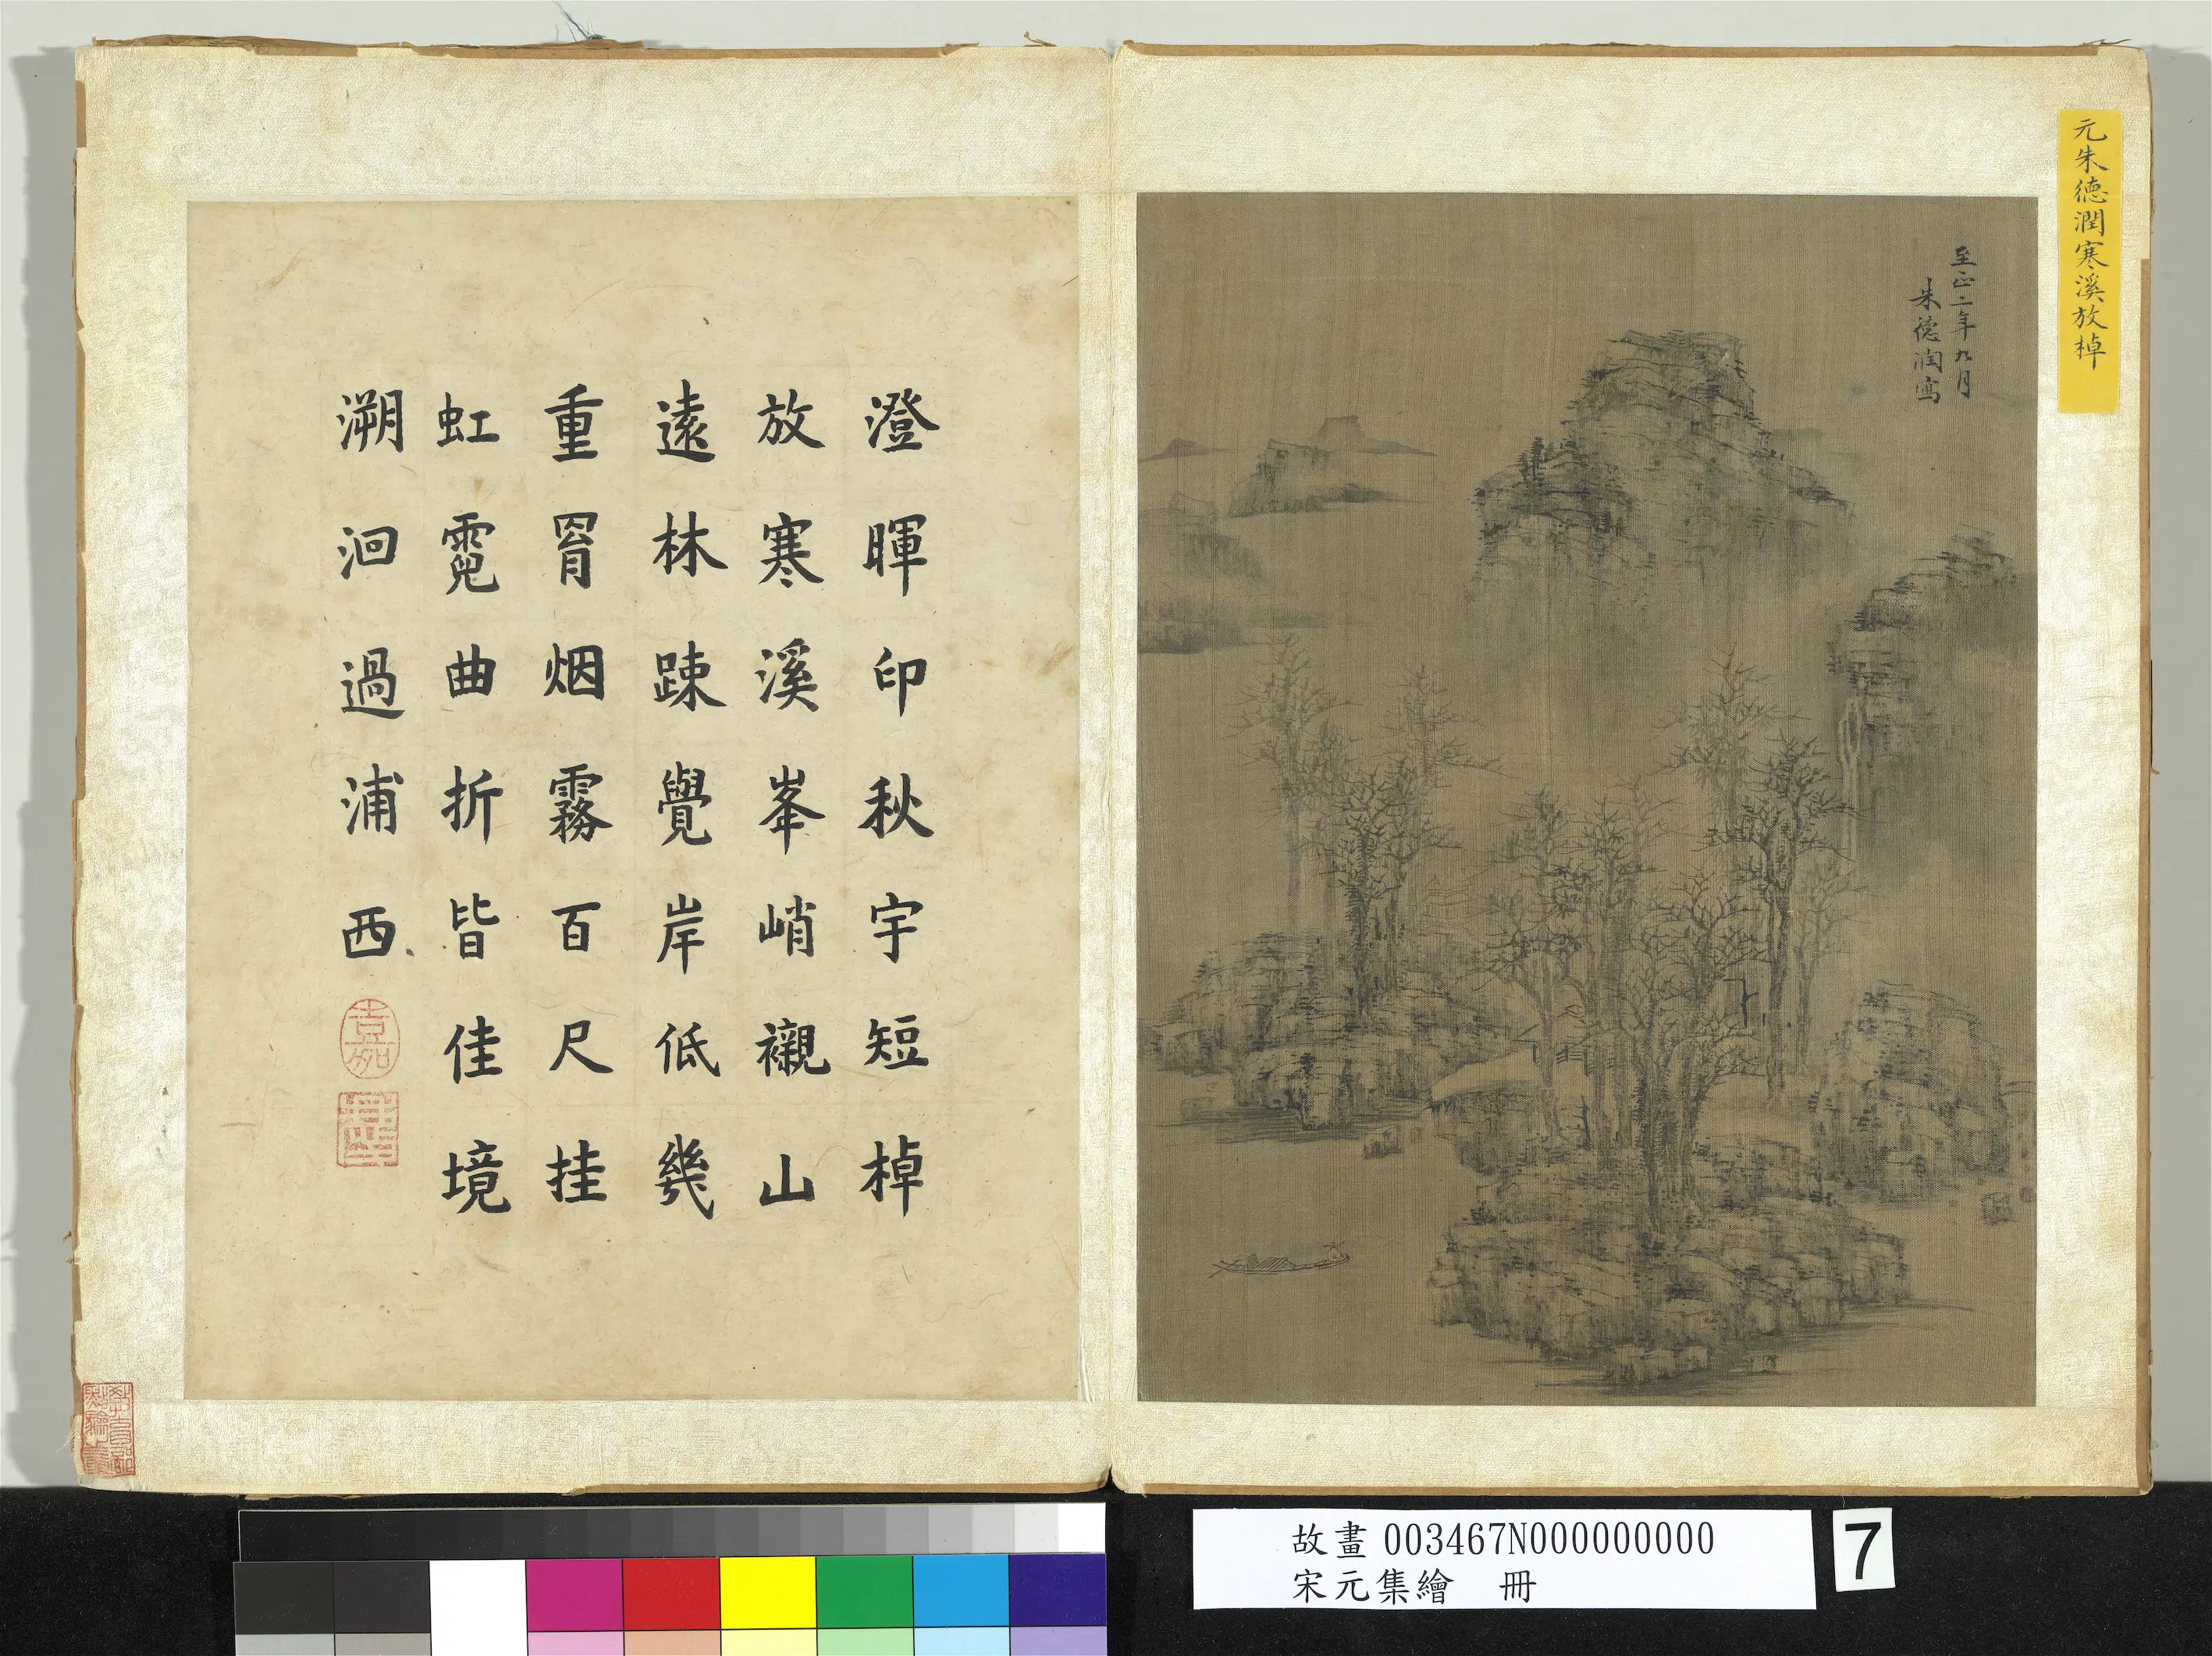 元朱德潤寒溪放棹
至正二年九月
朱德潤寫
澄暉印秋宇短棹
放寒溪峯峭襯山
遠林踈覺岸低幾
重罥烟霧百尺挂
虹霓曲折皆佳境
溯洄過浦西
故畫 003467N000000000
宋元集繪 冊
7